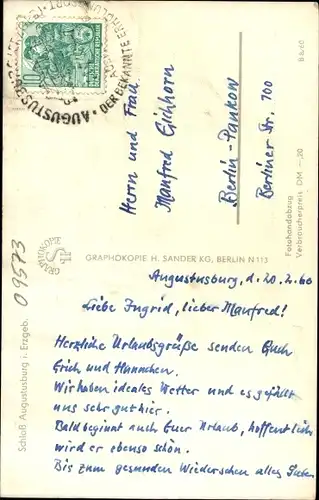 AUGUSTUSBURG
DER BEKANNTE ERHOLUNGSORT
10
Herrn und Frau
Manfred Eichhorn
Berlin-Pankow
Berliner Str. 100
B 8/60
Fotohandabzug
Verbraucherpreis DM -,20
GRAPHOKOPIE
GRAPHOKOPIE H. SANDER KG, BERLIN N 113
09573
Schloß Augustusburg i. Erzgeb.
Augustusburg, d. 20.2.60
Liebe Ingrid, lieber Manfred!
Herzliche Urlaubsgrüße senden Euch
Erich und Hannchen.
Wir haben ideales Wetter und es gefällt
uns sehr gut hier.
Bald beginnt auch Euer Urlaub, hoffentlich
wird er ebenso schön.
Bis zum gesunden Wiedersehen alles Gute